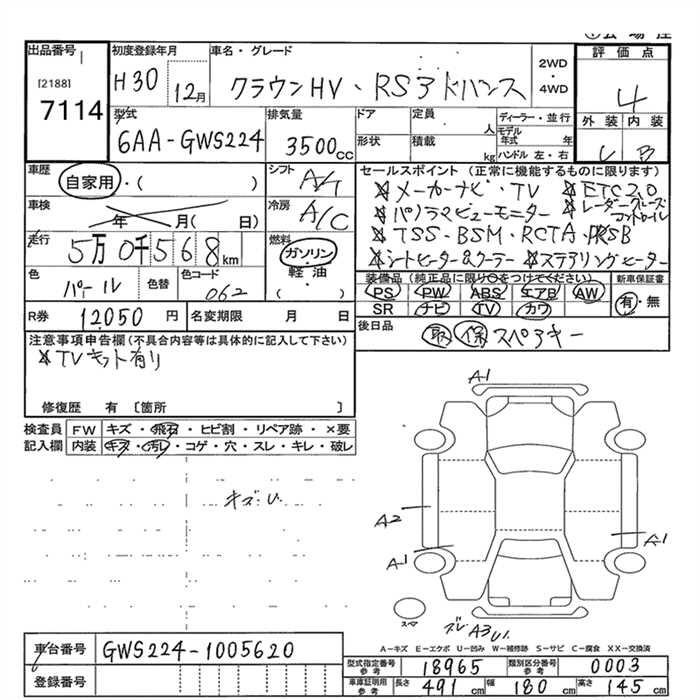 出品番号 初度登録年月 車名・グレード 2WD・4WD 評価点
[2188]
7114 H30 12月 クラウンHV・RSアドバンス 4
型式 排気量 ドア 定員 人 ディーラー・並行 外装 内装
6AA-GWS224 3500cc 形状 積載 kg モデル年式 年 ハンドル 左・右 B
車歴 自家用・( ) シフト A/T セールスポイント(正常に機能するものに限ります)
メーカーナビ・TV ETC2.0
車検 年 月( 日) 冷房 A/C パノラマビューモニター レーダークルーズコントロール
走行 5万0千568km 燃料 ガソリン・軽油・( ) TSS・BSM・RCTA・RSB
シートヒーター&クーラー ステアリングヒーター
色 パール 色替 色コード 062 装備品(純正品に限り○をつけてください) 新車保証書
PS PW ABS エアB AW 有・無
SR ナビ TV カワ
R券 12050円 名変期限 月 日 後日品 取 保 スペアキー
注意事項申告欄(不具合内容等は具体的に記入して下さい)
TVキット有り
修復歴 有 〔箇所 〕
検査員 FW キズ・飛石・ヒビ割・リペア跡・×要
記入欄 内装 キズ・汚レ・コゲ・穴・スレ・キレ・破レ
A-1
キズ・U
A2
A-1
A-1
スマ
ズレ A3 U1
A-キズ E-エクボ U-凹み W-補修跡 S-サビ C-腐食 XX-交換済
車台番号 GWS224-1005620
型式指定番号 参考 18965 類別区分番号 参考 0003
登録番号 車庫証明用 参考 長さ 491cm 幅 180cm 高さ 145cm